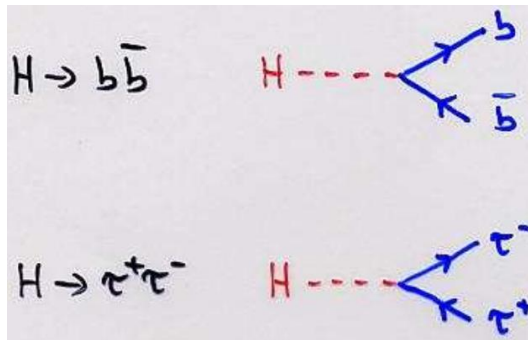 H → b b̄ H b
b̄
H → τ⁺τ⁻ H τ⁻
τ⁺